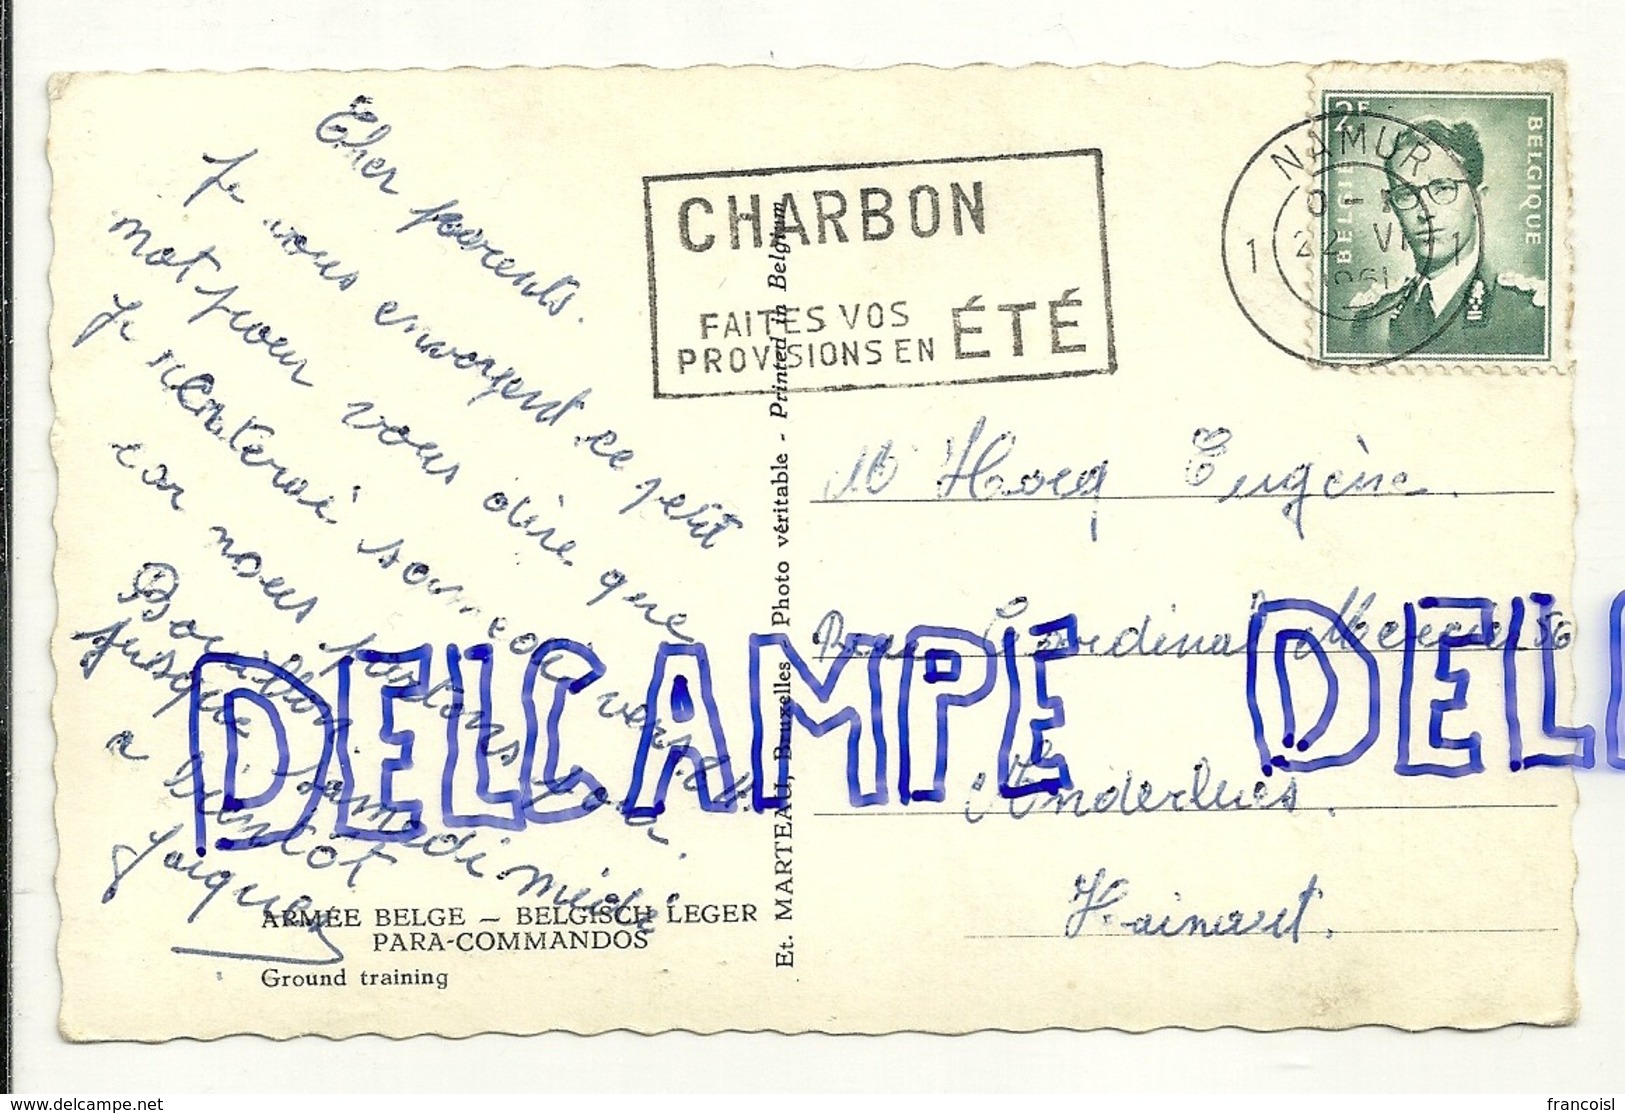 Cher parents.
Je vous envoyent ce petit
mot pour vous dire que
je rentrerai samedi vers
car nous partons pour
Bouillon.
jusque samedi midi
a bientot
Jacques
ARMÉE BELGE – BELGISCH LEGER
PARA-COMMANDOS
Ground training
Et. MARTEAU, Bruxelles Photo véritable - Printed in Belgium
CHARBON
FAITES VOS
PROVISIONS EN ÉTÉ
NAMUR
1 22 VI 1
2F
BELGIE BELGIQUE
Mr Hocq Eugène.
Rue Cardinal Mercier 56
Anderlues.
Hainaut.
DELCAMPE DEL
www.delcampe.net
francoisl